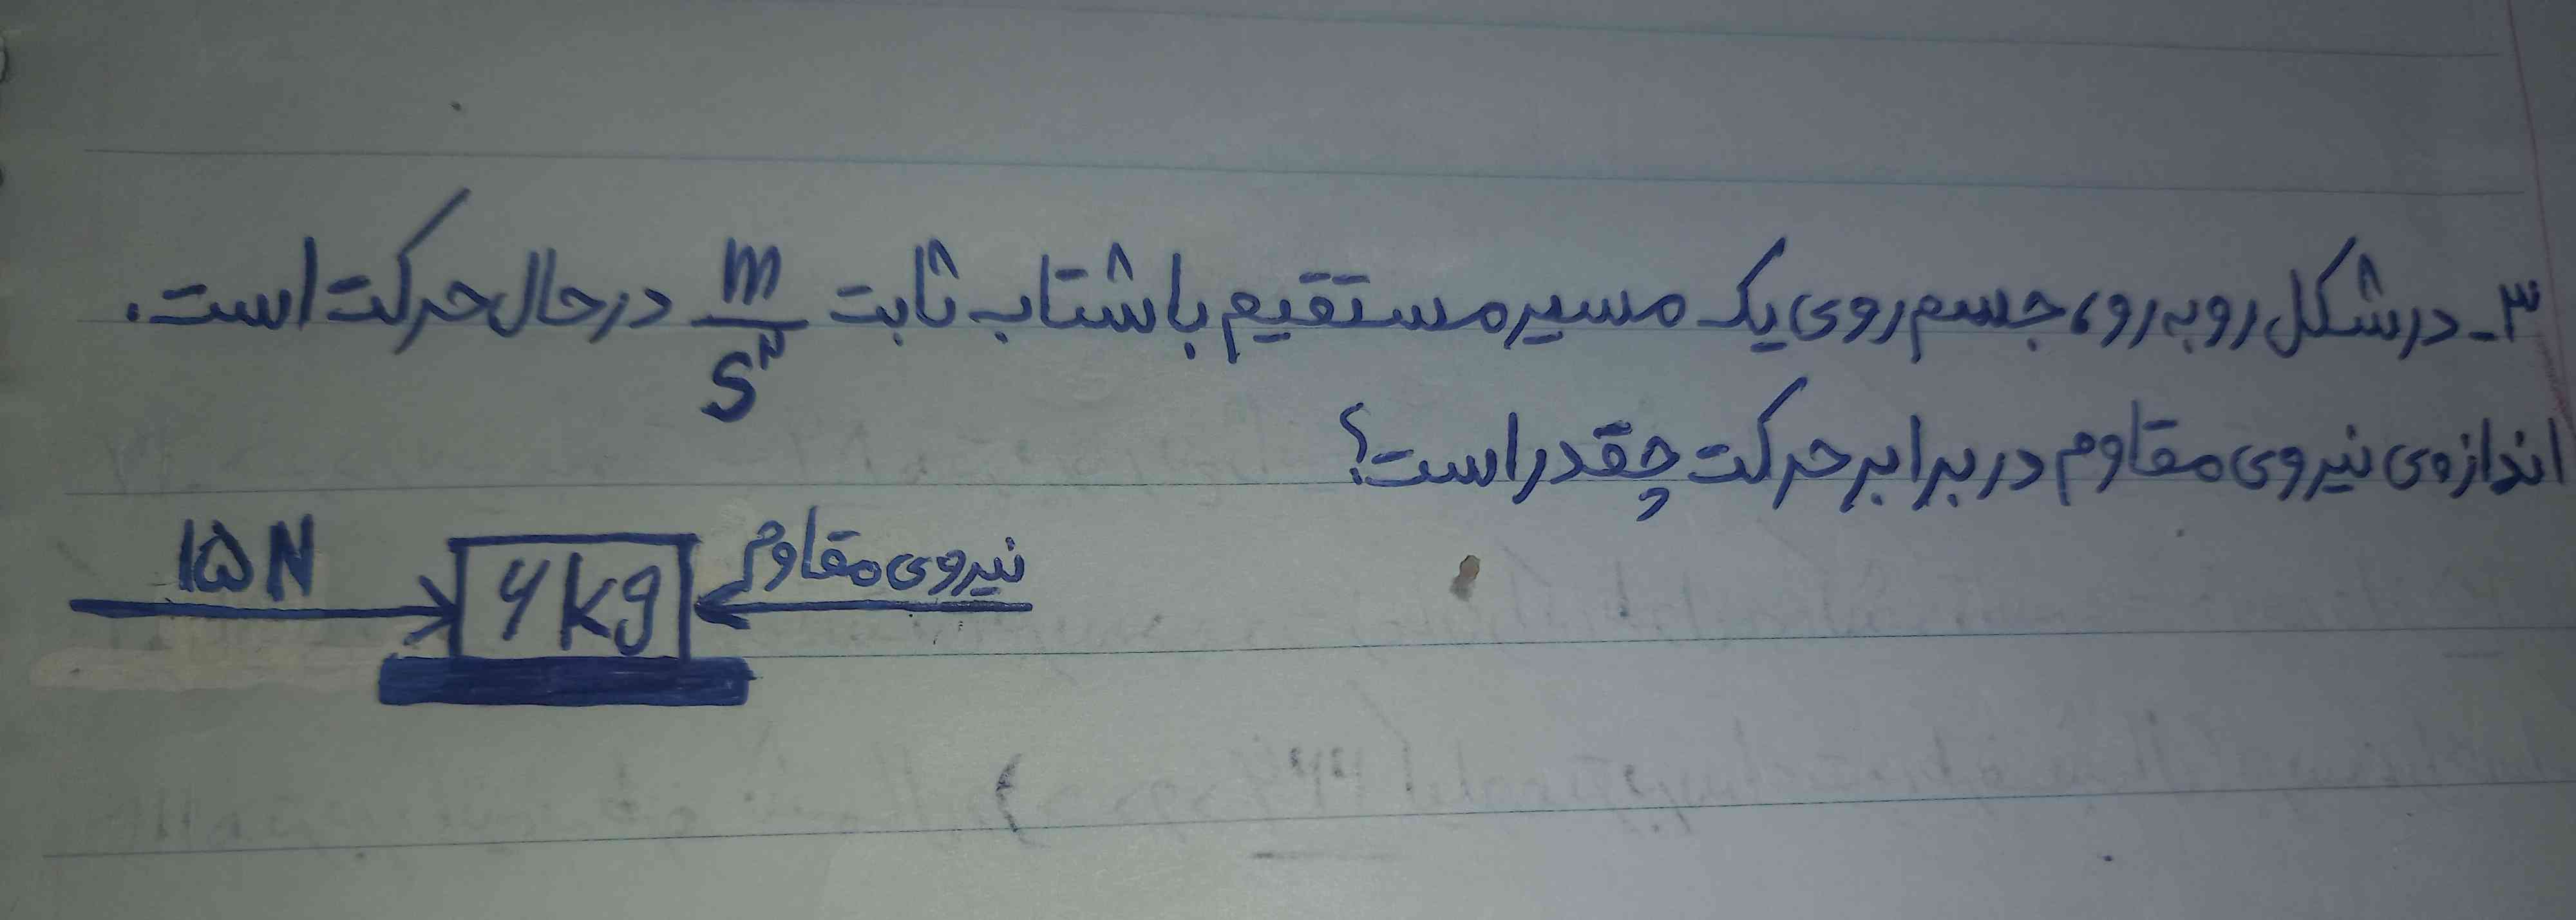 ۳- در شکل روبه رو، جسم روی یک مسیر مستقیم با شتاب ثابت m/s۲ در حال حرکت است.
اندازه‌ی نیروی مقاوم در برابر حرکت چقدر است؟
۱۵N ۶kg نیروی مقاوم